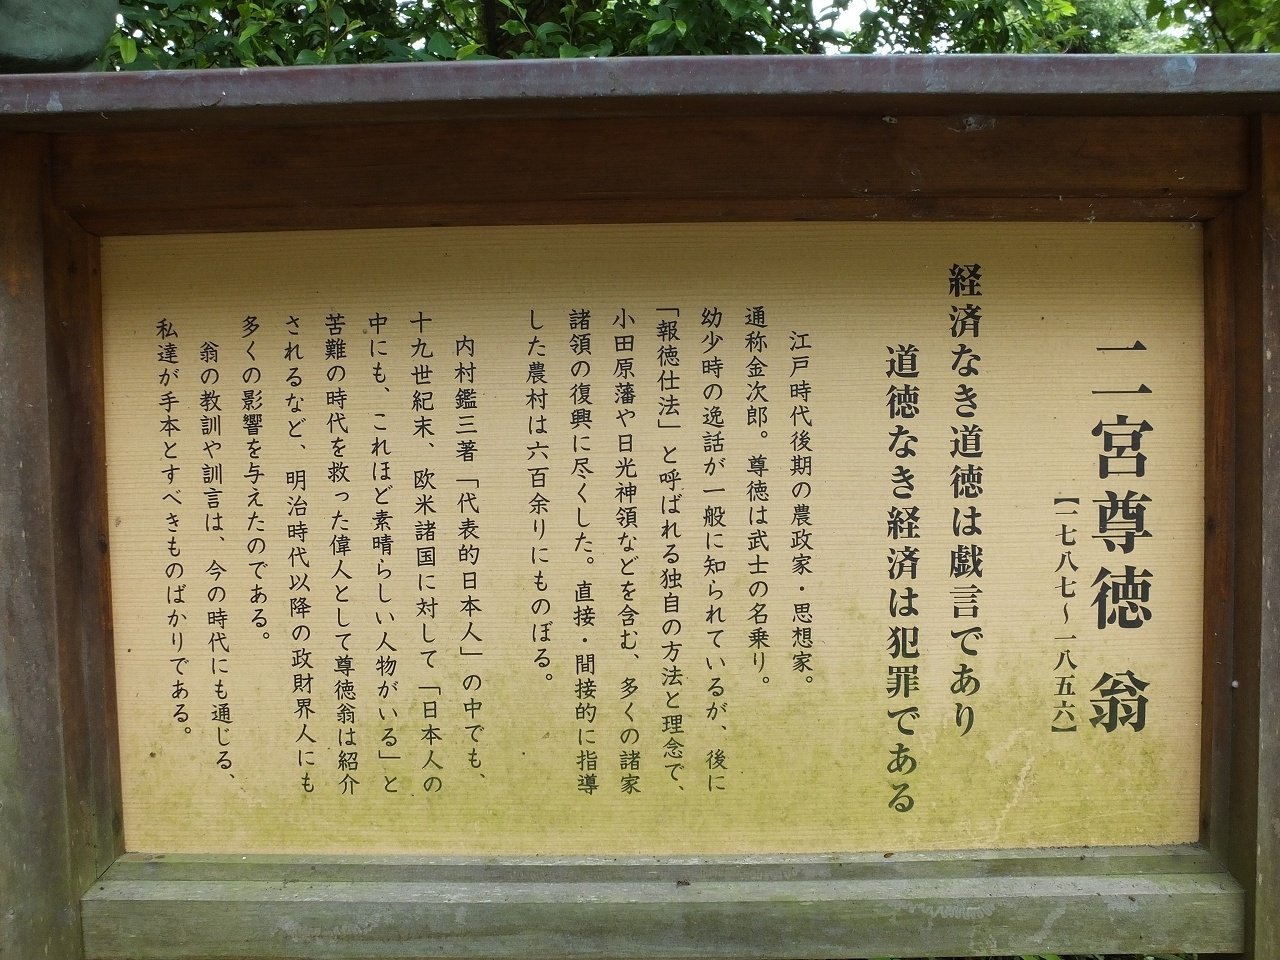 二宮尊徳 翁
【一七八七～一八五六】
経済なき道徳は戯言であり
道徳なき経済は犯罪である
江戸時代後期の農政家・思想家。
通称金次郎。尊徳は武士の名乗り。
幼少時の逸話が一般に知られているが、後に
「報徳仕法」と呼ばれる独自の方法と理念で、
小田原藩や日光神領などを含む、多くの諸家
諸領の復興に尽くした。直接・間接的に指導
した農村は六百余りにものぼる。
内村鑑三著「代表的日本人」の中でも、
十九世紀末、欧米諸国に対して「日本人の
中にも、これほど素晴らしい人物がいる」と
苦難の時代を救った偉人として尊徳翁は紹介
されるなど、明治時代以降の政財界人にも
多くの影響を与えたのである。
翁の教訓や訓言は、今の時代にも通じる、
私達が手本とすべきものばかりである。